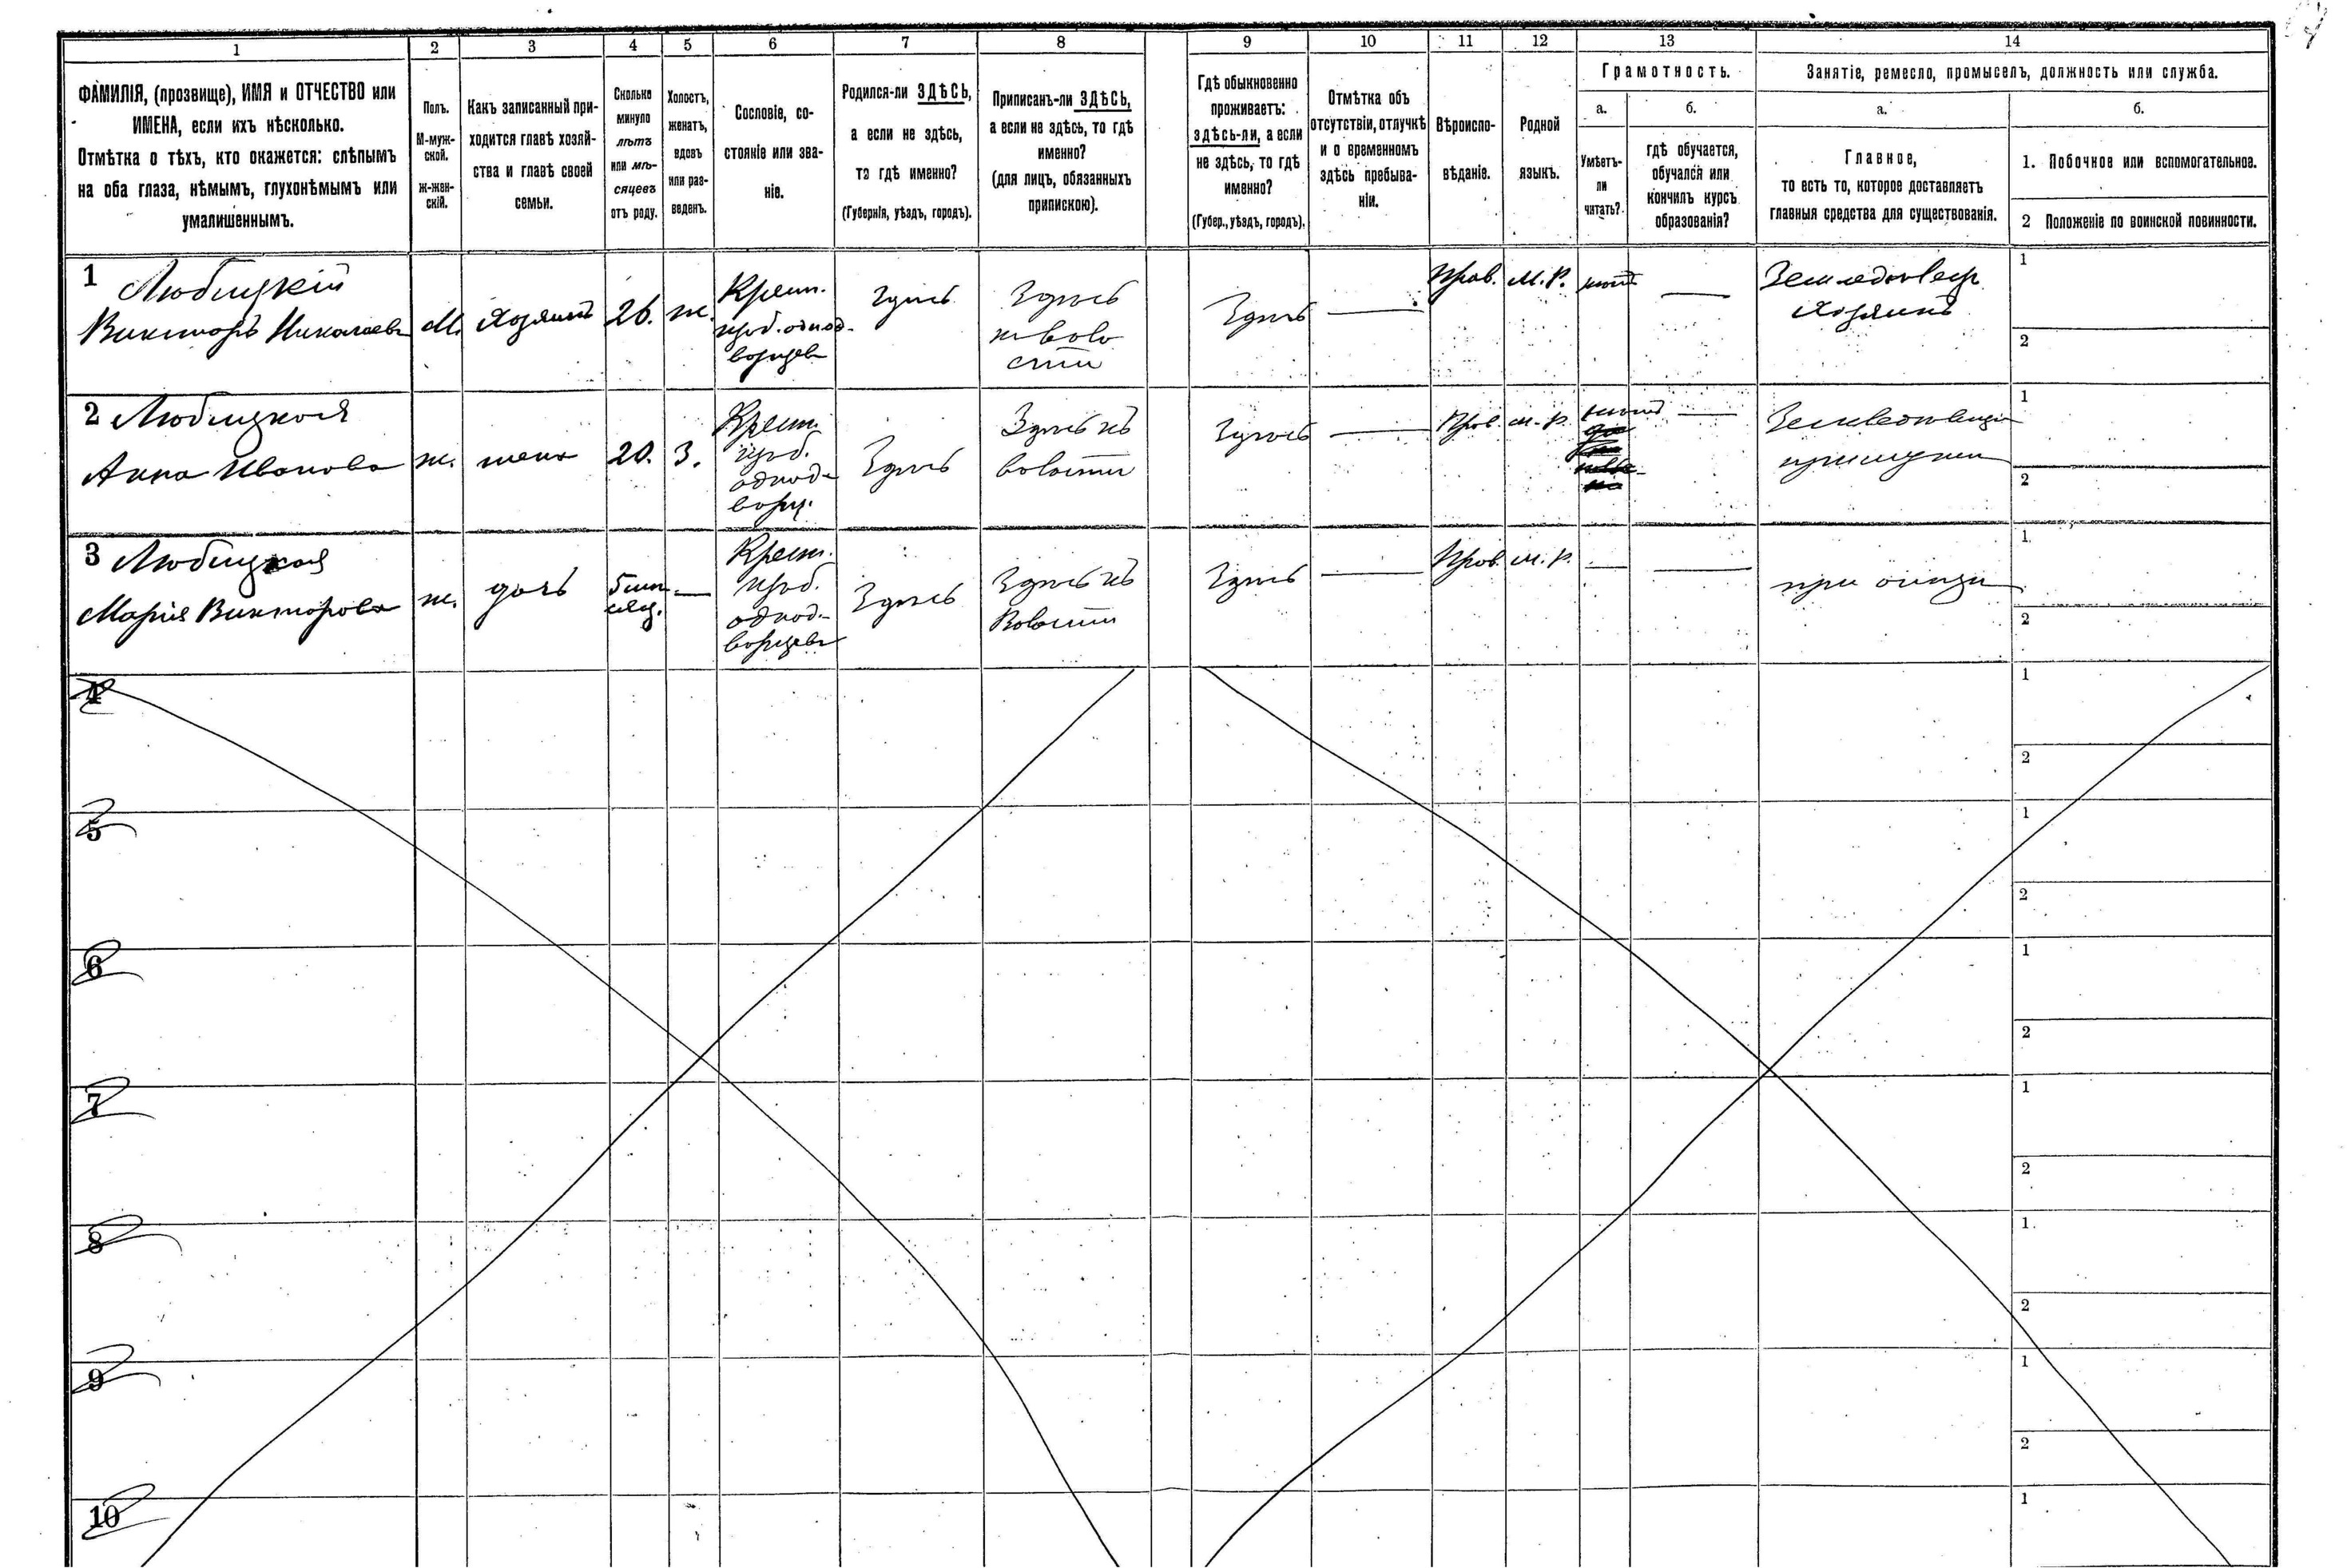 1
2
3
4
5
6
7
8
9
10
11
12
13
14
ФАМИЛІЯ, (прозвище), ИМЯ и ОТЧЕСТВО или
ИМЕНА, если ихъ нѣсколько.
Отмѣтка о тѣхъ, кто окажется: слѣпымъ
на оба глаза, нѣмымъ, глухонѣмымъ или
умалишеннымъ.
Полъ.
М-муж-
ской.
Ж-жен-
скій.
Какъ записанный при-
ходится главѣ хозяй-
ства и главѣ своей
семьи.
Сколько
минуло
лѣтъ
или мѣ-
сяцевъ
отъ роду.
Холостъ,
женатъ,
вдовъ
или раз-
веденъ.
Сословіе, со-
стояніе или зва-
ніе.
Родился-ли ЗДѢСЬ,
а если не здѣсь,
то гдѣ именно?
(Губернія, уѣздъ, городъ).
Приписанъ-ли ЗДѢСЬ,
а если не здѣсь, то гдѣ
именно?
(для лицъ, обязанныхъ
припискою).
Гдѣ обыкновенно
проживаетъ:
здѣсь-ли, а если
не здѣсь, то гдѣ
именно?
(Губер., уѣздъ, городъ).
Отмѣтка объ
отсутствіи, отлучкѣ
и о временномъ
здѣсь пребыва-
ніи.
Вѣроиспо-
вѣданіе.
Родной
языкъ.
Грамотность.
а.
Умѣетъ-
ли
читать?
б.
гдѣ обучается,
обучался или
кончилъ курсъ
образованія?
Занятіе, ремесло, промыселъ, должность или служба.
а.
Главное,
то есть то, которое доставляетъ
главныя средства для существованія.
б.
1. Побочное или вспомогательное.
2 Положеніе по воинской повинности.
1 Любицкій
Викторъ Николаевъ
М.
Хозяинъ
26.
ж.
Крест.
одно-
дворцев
Здѣсь
Здѣсь
къ воло
сти
Здѣсь
Прав.
М.Р.
Хозяинъ
1
2
2 Любицкая
Анна Иванова
ж.
жена
20.
З.
Крест.
однод-
ворц.
Здѣсь
Здѣсь къ
волости
Здѣсь
Прав.
м.р.
1
2
3 Любицкая
Марія Викторова
ж.
дочь
5 мѣ
сяц.
Крест.
однод-
ворцев
Здѣсь
Здѣсь къ
Волости
Здѣсь
Прав.
м.р.
при отцѣ
1
2
4
1
2
5
1
2
6
1
2
7
1
2
8
1
2
9
1
2
10
1